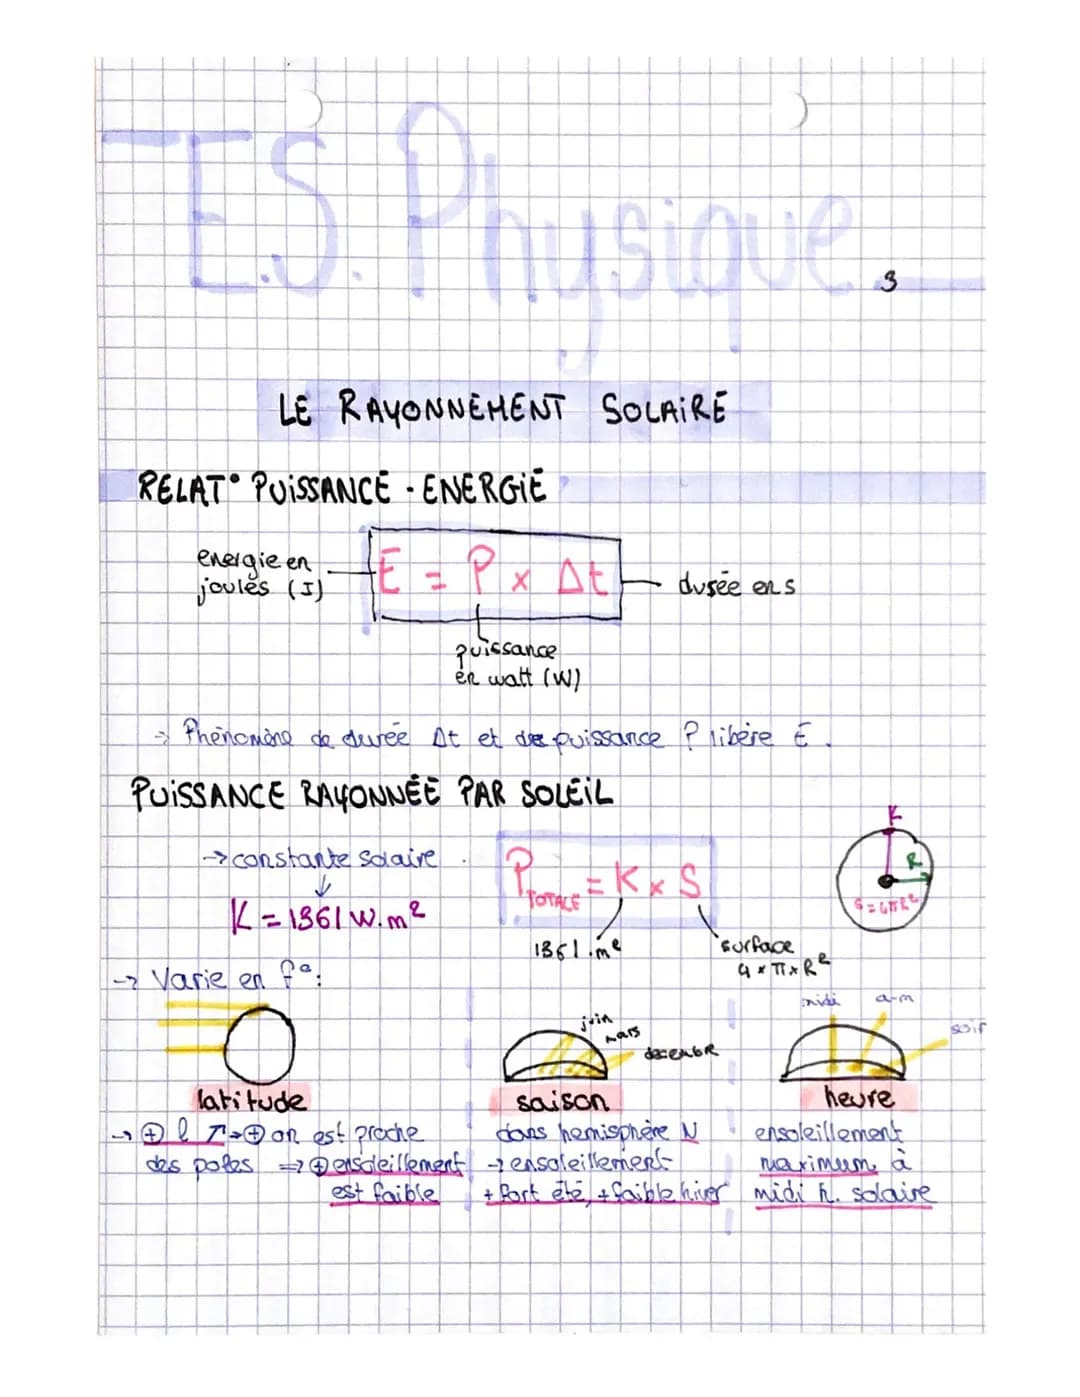 E.S. Physique
3
LE RAYONNEMENT SOLAIRE
RELAT° PUISSANCE - ENERGIE
energie en
joules (J)
E = P x Δt
durée en s
puissance
en watt (W)
→ Phénomène de durée Δt et de puissance P libère E.
PUISSANCE RAYONNÉE PAR SOLEIL
→ constante solaire
K = 1361 W.m²
P TOTALE = K x S
1361.m²
surface
4 x π x R²
K
R
S = 4πR²
→ Varie en f°:
juin
mars
decembre
midi
a-m
soir
latitude
saison
heure
→ ⊕ l ↗ → ⊕ on est proche
des poles ⇒ ⊕ ensoleillement
est faible
dans hemisphère N
→ ensoleillement
+ fort été, + faible hiver
ensoleillement
maximum à
midi h. solaire